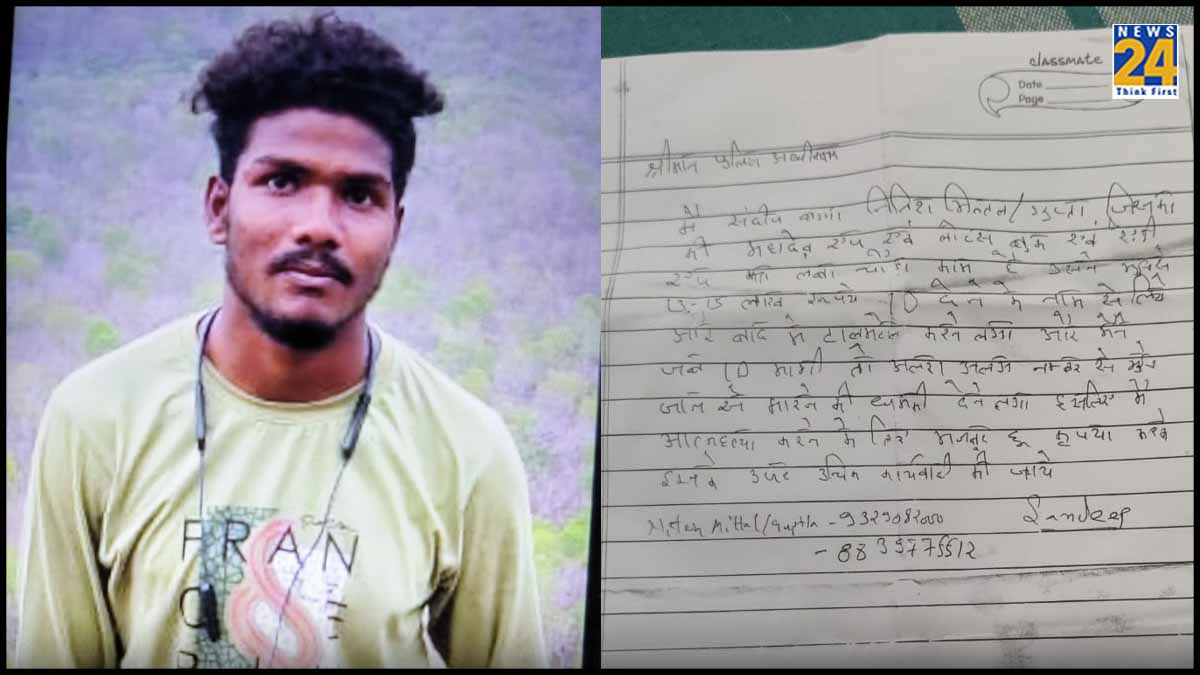 NEWS
24
Think First
classmate
Date
Page
श्रीमान पुलिस अधीक्षक
मैं संदीप बग्गा नितिश मित्तल/गुप्ता जिसका
की महादेव एप एवं लोटस बुक एवं रेड्डी
एप का लम्बा चौड़ा काम है उसने मुझसे
लाख रूपये ID देने के नाम से लिये
और बाद मे टालमटोल करने लगा और मैने
जब ID मांगी तो अलग अलग नम्बर से मुझे
जान से मारने की धमकी देने लगा इसलिए मैं
आत्महत्या करने के लिए मजबूर हू कृपया करके
इसके उपर उचित कार्यवाही की जाये
Nitesh Mittal/Gupta - 9329082000 Sandeep
- 8839775512
FRAN